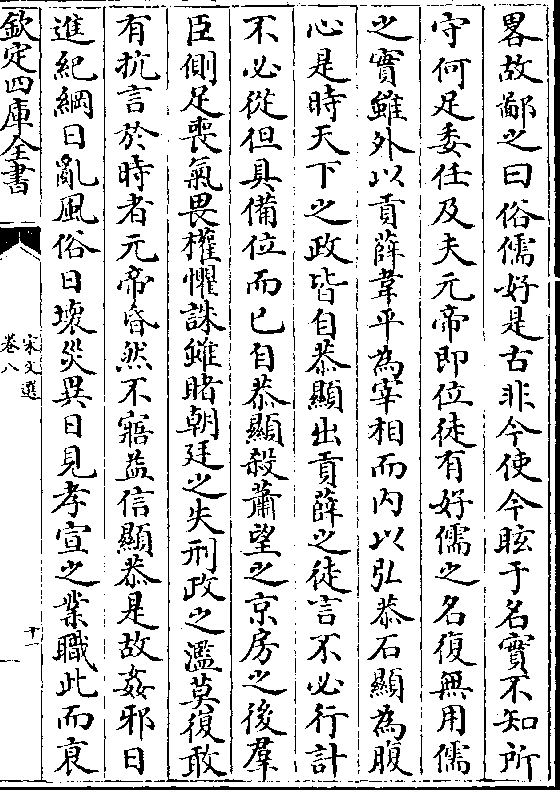 畧故鄙之曰俗儒好是古非今使今眩于名實不知所
守何足委任及夫元帝即位徒有好儒之名復無用儒
之實雖外以貢薛韋平為宰相而内以弘恭石顯為腹
心是時天下之政皆自恭顯出貢薛之徒言不必行計
不必從但具備位而已自恭顯殺蕭望之京房之後羣
臣側足喪氣畏權懼誅雖睹朝廷之失刑政之濫莫復敢
有抗言於時者元帝昏然不寤益信顯恭是故姦邪日
進紀綱日亂風俗日壞災異日見孝宣之業職此而衰
欽定四庫全書
宋文選
卷八
十一